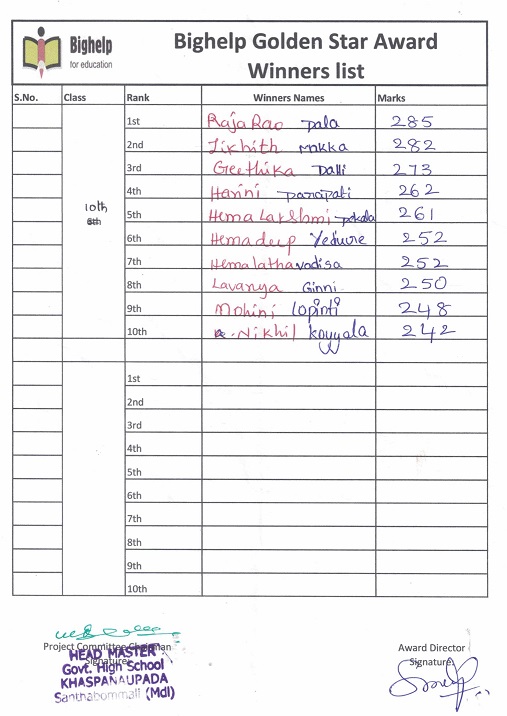 Bighelp
for education
Bighelp Golden Star Award
Winners list
S.No. Class Rank Winners Names Marks
1st RajaRao pala 285
2nd Jixhith mokka 282
3rd Geethika Dalli 273
4th Harini panapati 262
10th
8th
5th Hema Lakshmi pokala 261
6th Hemadeep Yeduvre 252
7th Hemalatha vadisa 252
8th Lavanya Ginni 250
9th Mohini lopinti 248
10th Nikhil koyyala 242
1st
2nd
3rd
4th
5th
6th
7th
8th
9th
10th
Project Committee Chairman
Signature
HEAD MASTER
Govt. High School
KHASPANAUPADA
Santhabommali (Mdl)
Award Director
Signature